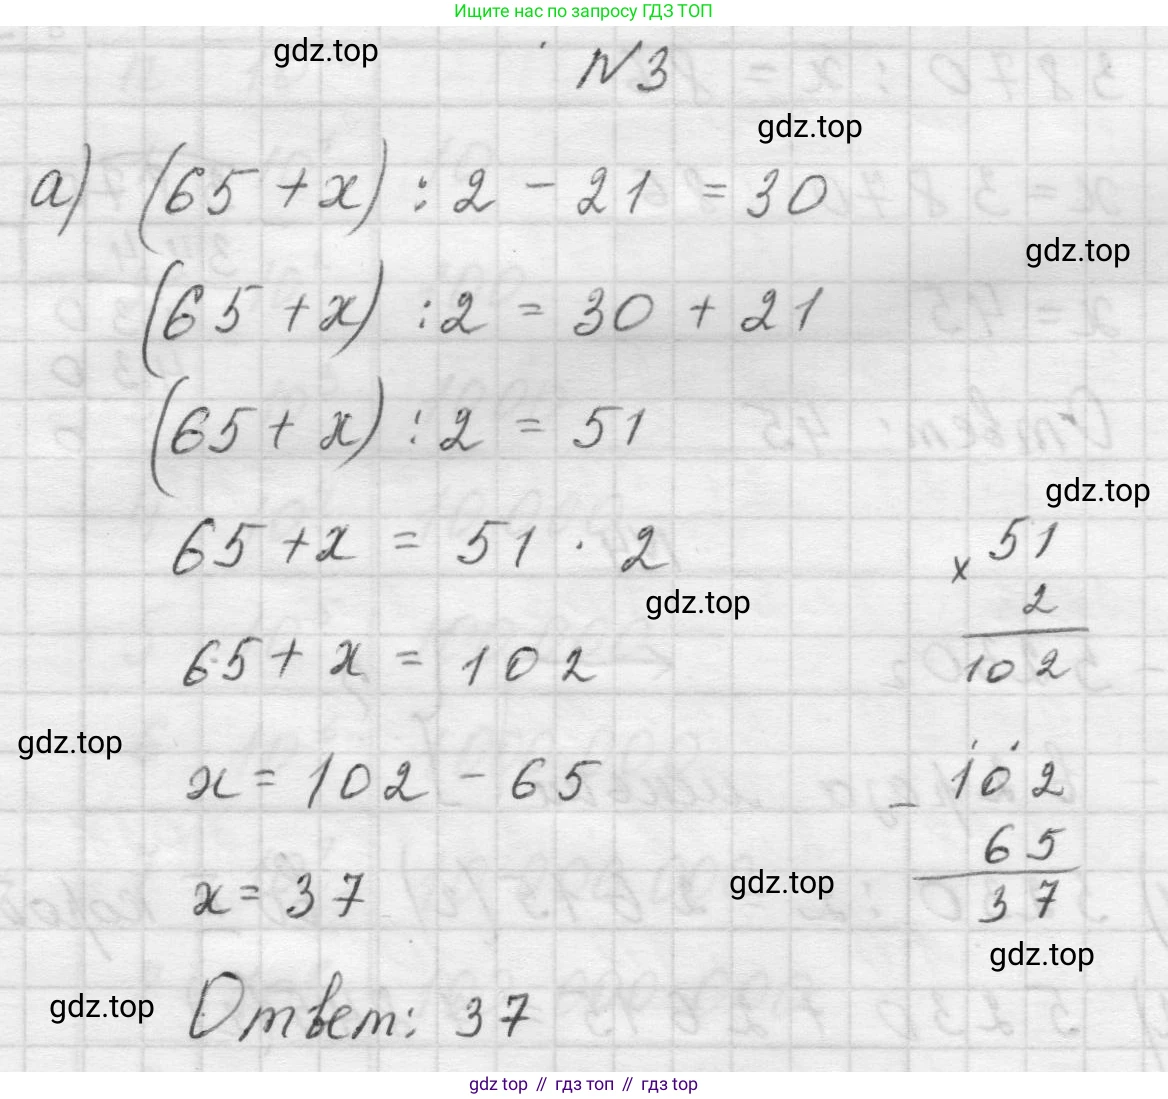 Ищите нас по запросу ГДЗ ТОП
gdz.top
N3
gdz.top
а) (65 + x) : 2 - 21 = 30
gdz.top
(65 + x) : 2 = 30 + 21
(65 + x) : 2 = 51
gdz.top
65 + x = 51 · 2
x 51
2
102
gdz.top
65 + x = 102
gdz.top
x = 102 - 65
- 102
65
37
x = 37
gdz.top
gdz.top
gdz.top
Ответ: 37
gdz top // гдз топ // гдз top